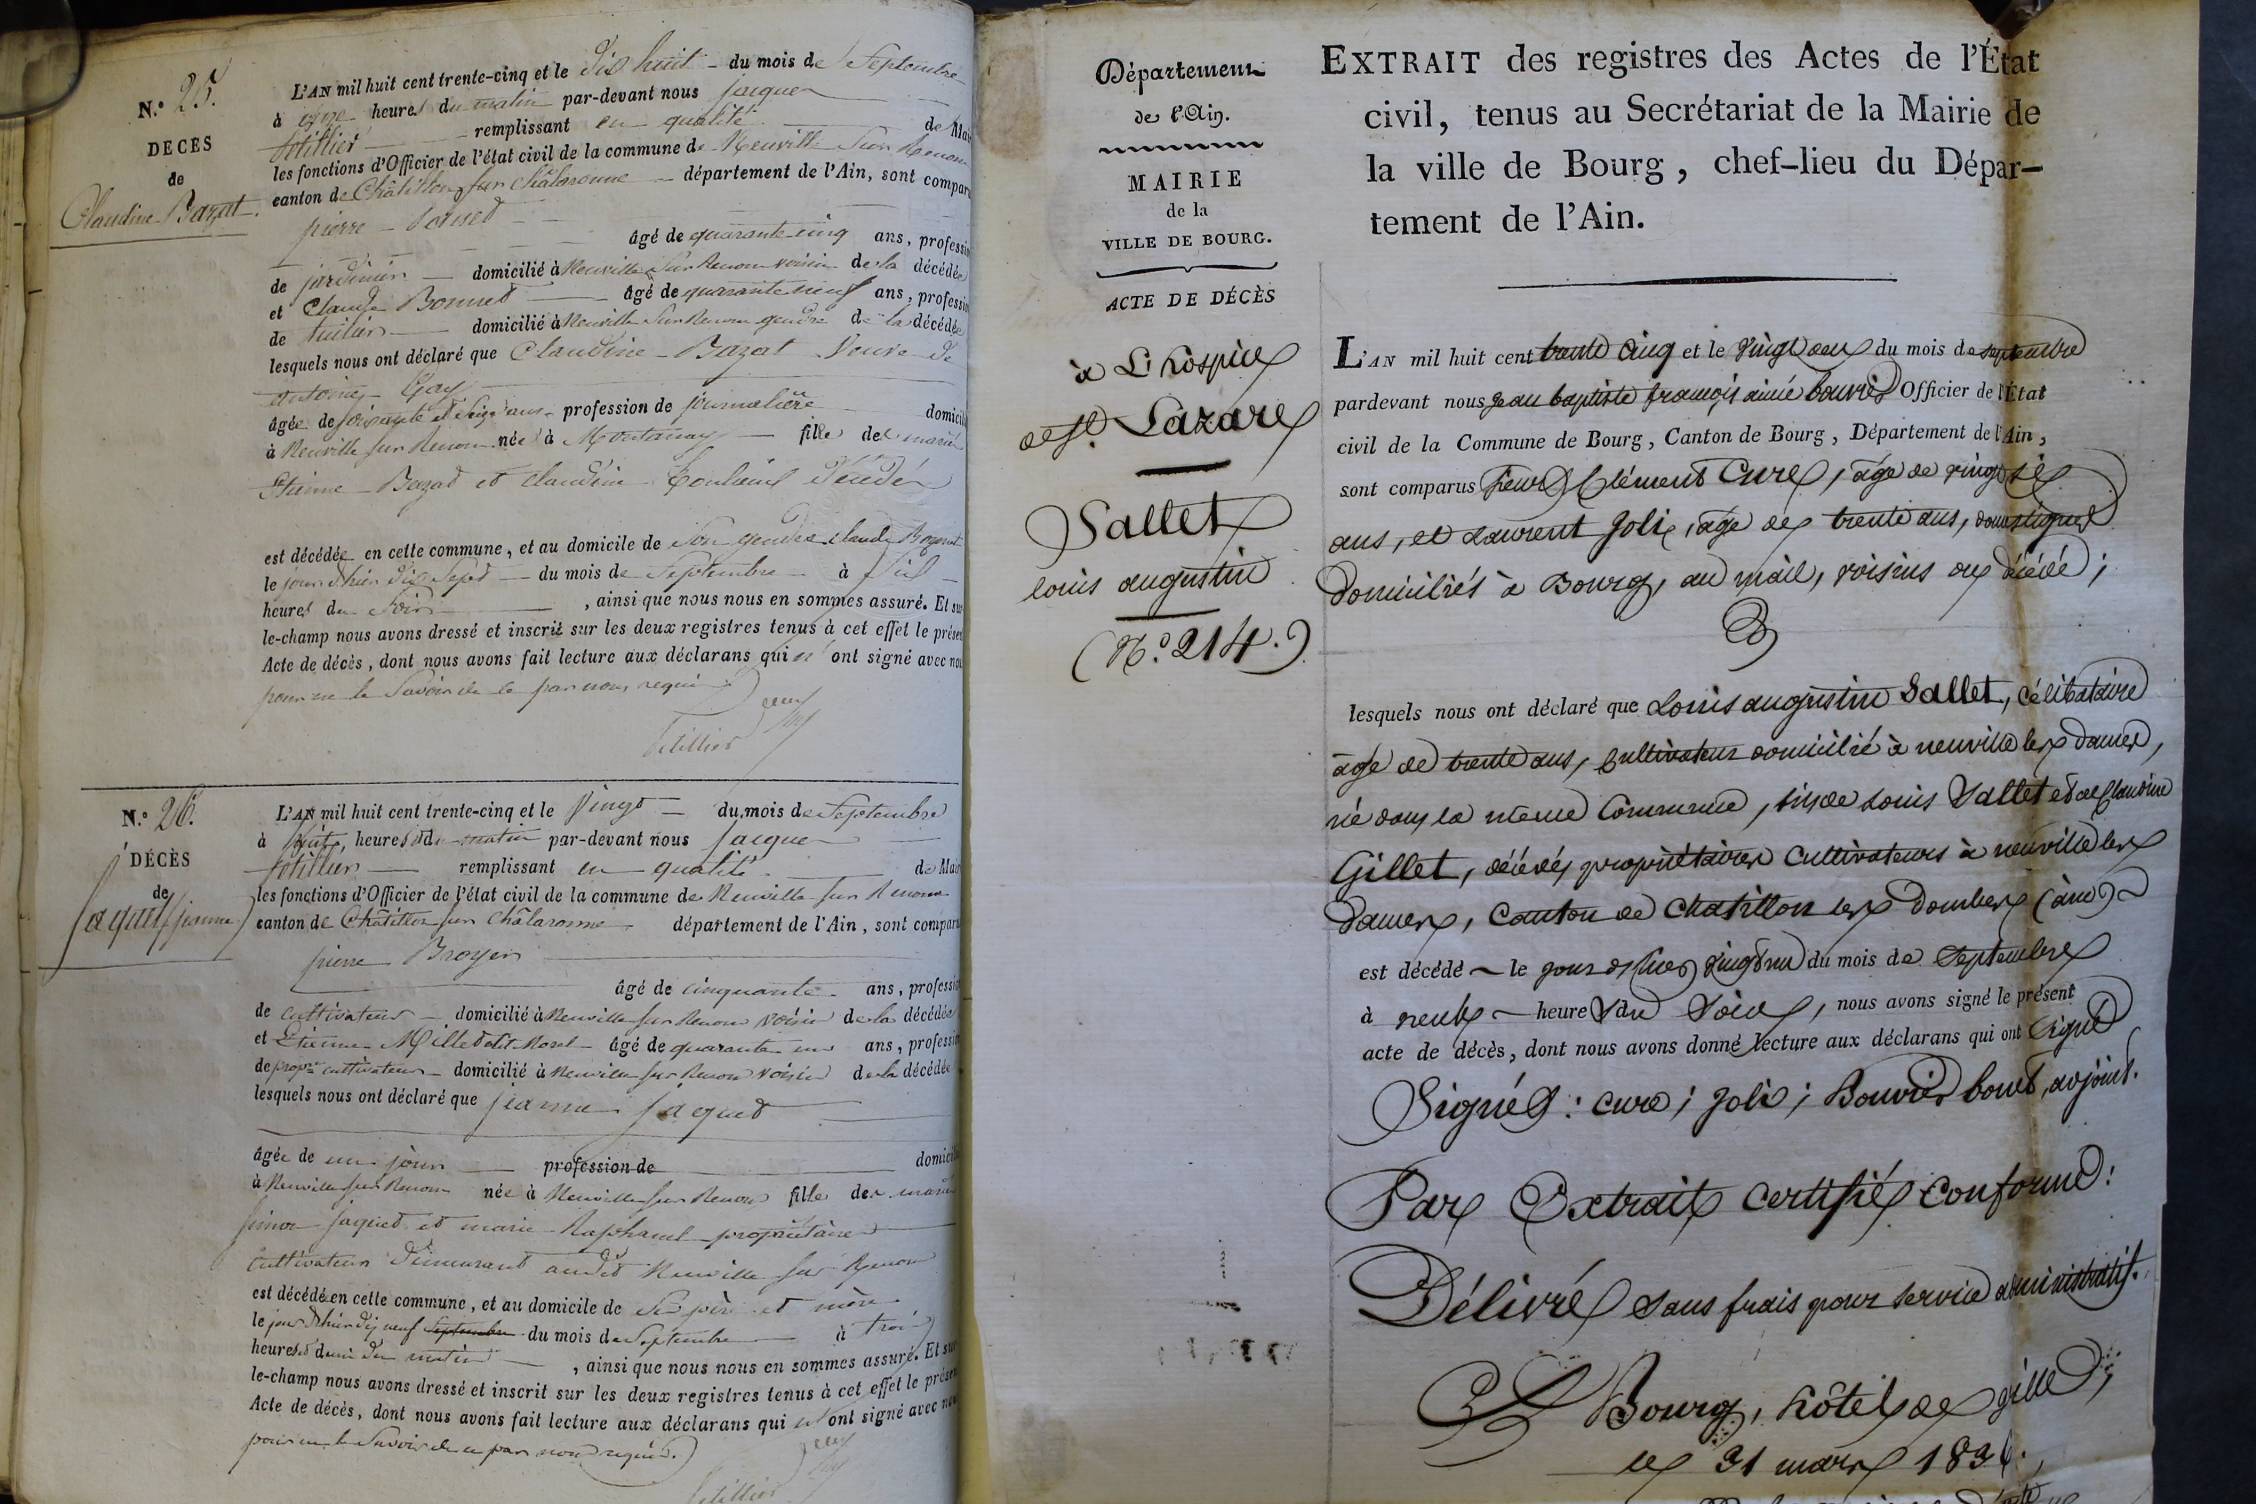 N.º 25.
DÉCÈS
de
Claudine Bazat.
L'AN mil huit cent trente-cinq et le dix huit du mois de Septembre
à onze heures du matin par-devant nous jacques
fétillier remplissant en qualité de Mai
les fonctions d'Officier de l'état civil de la commune de Neuville Sur Renom
canton de Châtillon sur chalaronne département de l'Ain, sont compar
pierre
âgé de quarante-cinq ans, professi
de jardinier domicilié à Neuville Sur Renom voisin de la décédée
et Claude Bonnet âgé de quarante neuf ans, professi
de tuilier domicilié à Neuville Sur Renom gendre de la décédée
lesquels nous ont déclaré que Claudine Bazat Veuve de
antoine Gay
âgée de soixante et seize ans profession de journalière domicil
à Neuville sur Renom née à Montanay fille de mariés
Etienne Bazat et claudine décédés
est décédée en cette commune, et au domicile de Son gendre claude Bonnet
le jour d'hier dix Sept du mois de Septembre à Six
heures du Soir , ainsi que nous nous en sommes assuré. Et sur
le-champ nous avons dressé et inscrit sur les deux registres tenus à cet effet le présen
Acte de décès, dont nous avons fait lecture aux déclarans qui n'ont signé avec nou
pour ne le Savoir de ce par nous requis
fétillier
N.º 26.
DÉCÈS
de
jaquet jeanne
L'AN mil huit cent trente-cinq et le Vingt du mois de Septembre
à huit heures du matin par-devant nous jacques
fétillier remplissant en qualité de Mai
les fonctions d'Officier de l'état civil de la commune de Neuville sur Renom
canton de Châtillon sur châlaronne département de l'Ain, sont compar
pierre Broyer
âgé de cinquante ans, professi
de cultivateur domicilié à Neuville sur Renom voisin de la décédée
et Etienne Millet dit Morel âgé de quarante un ans, professi
de propre cultivateur domicilié à Neuville sur Renom voisin de la décédée
lesquels nous ont déclaré que jeanne jaquet
âgée de un jour profession de domicil
à Neuville sur Renom née à Neuville sur Renom fille des mariés
Simon jaquet et marie Raphanel propriétaire
cultivateur demeurant audit Neuville sur Renom
est décédée en cette commune, et au domicile de Ses père et mère
le jour d'hier dix neuf Septembre du mois de Septembre à trois
heures et demi du matin , ainsi que nous nous en sommes assuré. Et sur
le-champ nous avons dressé et inscrit sur les deux registres tenus à cet effet le présen
Acte de décès, dont nous avons fait lecture aux déclarans qui n'ont signé avec nou
pour ne le Savoir de ce par nous requis.
fétillier
Département
de l'Ain.
MAIRIE
de la
VILLE DE BOURG.
ACTE DE DÉCÈS
à L'hospice
de St. Lazare
Sallet
louis augustin
(N.º 214.)
EXTRAIT des registres des Actes de l'État
civil, tenus au Secrétariat de la Mairie de
la ville de Bourg, chef-lieu du Dépar-
tement de l'Ain.
L'AN mil huit cent trente cinq et le vingt deux du mois de septembre
pardevant nous jean baptiste françois aimé bouvier Officier de l'État
civil de la Commune de Bourg, Canton de Bourg, Département de l'Ain,
sont comparus sieurs Clément Cure, âgé de vingt six
ans, et Laurent Joli, âgé de trente ans, domestiques
domiciliés à Bourg, au mail, voisins du décédé;
lesquels nous ont déclaré que Louis augustin Sallet, célibataire
âgé de trente ans, cultivateur domicilié à neuville les dames,
né dans la même Commune, fils de Louis Sallet et de Claudine
Gillet, décédés propriétaires cultivateurs à neuville les
dames, canton de chatillon les dombes (ain)
est décédé le jour d'hier vingt un du mois de Septembre
à neuf heures du Soir, nous avons signé le présent
acte de décès, dont nous avons donné lecture aux déclarans qui ont signé
Signés: cure; Joli; Bouvier bonet, adjoint.
Par Extrait certifié conforme:
Délivré sans frais pour service administratif.
Bourg, hôtel de ville,
le 31 mars 1836.